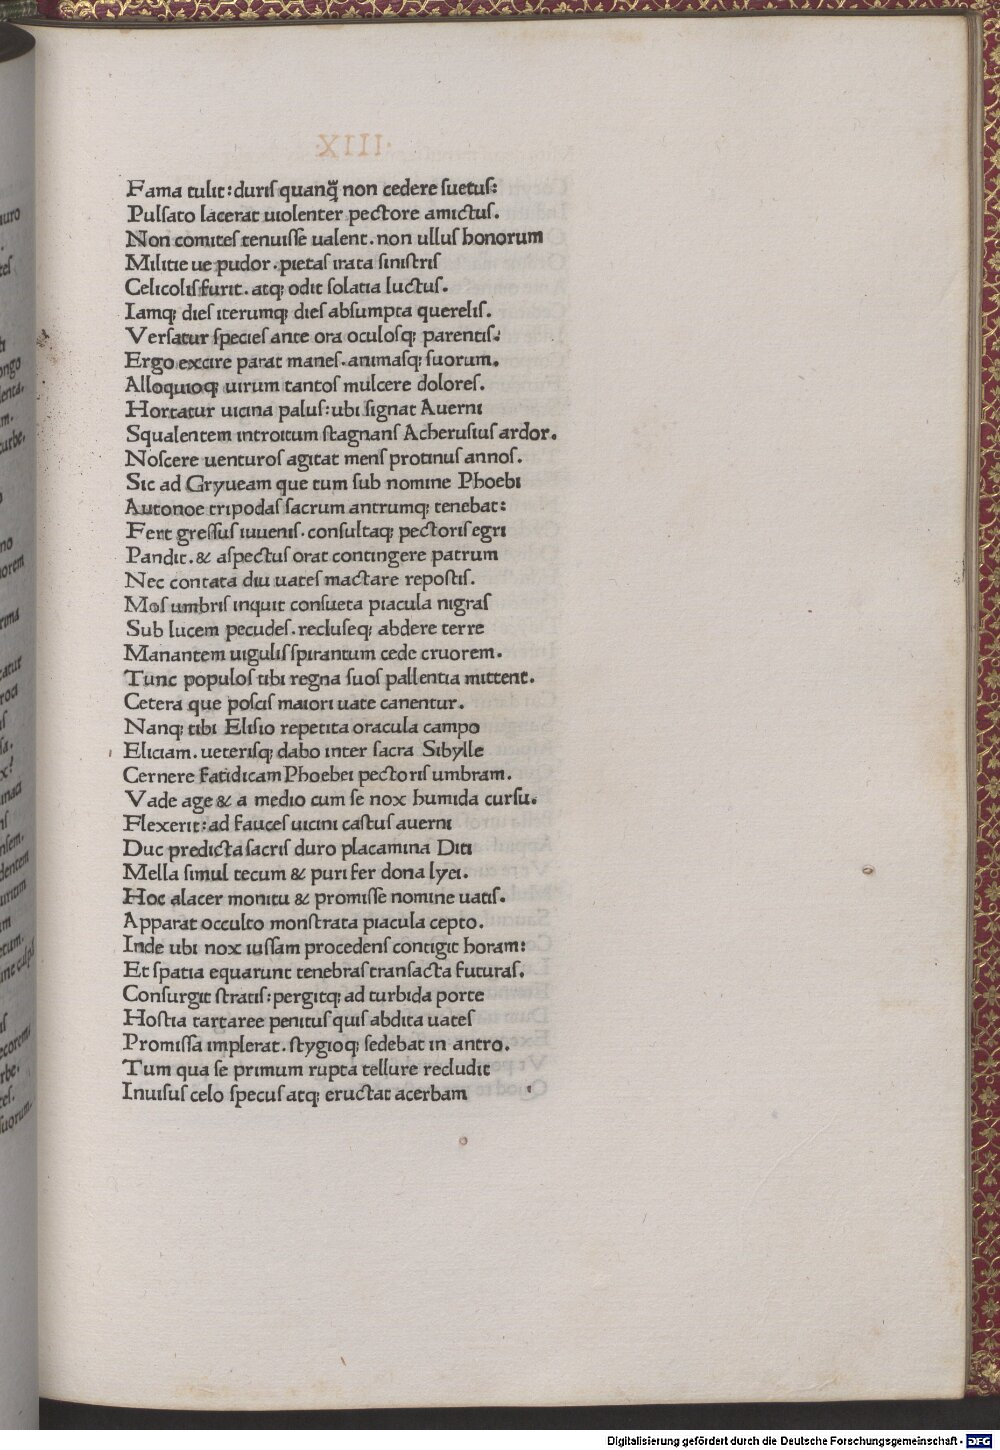 Fama tulit: duriſ quanq̃ non cedere ſuetuſ:
Pulſato lacerat uiolenter pectore amictuſ.
Non comiteſ tenuiſſe ualent. non ulluſ honorum
Militie ue pudor. pietaſ irata ſiniſtriſ
Celicoliſ furit. atq; odit ſolatia luctuſ.
Iamq; dieſ iterumq; dieſ abſumpta quereliſ.
Verſatur ſpecieſ ante ora oculoſq; parentiſ.
Ergo excire parat maneſ. animaſq; ſuorum.
Alloquioq; uirum tantoſ mulcere doloreſ.
Hortatur uicina paluſ: ubi ſignat Auerni
Squalentem introitum ſtagnanſ Acheruſiuſ ardor.
Noſcere uenturoſ agitat menſ protinuſ annoſ.
Sic ad Gryueam que tum ſub nomine Phoebi
Autonoe tripodaſ ſacrum antrumq; tenebat:
Fert greſſuſ iuueniſ. conſultaq; pectoriſ egri
Pandit. & aſpectuſ orat contingere patrum
Nec contata diu uateſ mactare repoſtiſ.
Moſ umbriſ inquit conſueta piacula nigraſ
Sub lucem pecudeſ. recluſeq; abdere terre
Manantem uiguliſ ſpirantum cede cruorem.
Tunc populoſ tibi regna ſuoſ pallentia mittent.
Cetera que poſciſ maiori uate canentur.
Nanq; tibi Eliſio repetita oracula campo
Eliciam. ueteriſq; dabo inter ſacra Sibylle
Cernere fatidicam Phoebei pectoriſ umbram.
Vade age & a medio cum ſe nox humida curſu.
Flexerit: ad fauceſ uicini caſtuſ auerni
Duc predicta ſacriſ duro placamina Diti
Mella ſimul tecum & puri fer dona lyei.
Hoc alacer monitu & promiſſe nomine uatiſ.
Apparat occulto monſtrata piacula cepto.
Inde ubi nox iuſſam procedenſ contigit horam:
Et ſpatia equarunt tenebraſ tranſacta futuraſ.
Conſurgit ſtratiſ: pergitq; ad turbida porte
Hoſtia tartaree penituſ quiſ abdita uateſ
Promiſſa implerat. ſtygioq; ſedebat in antro.
Tum qua ſe primum rupta tellure recludit
Inuiſuſ celo ſpecuſ atq; eructat acerbam
Digitalisierung gefördert durch die Deutsche Forschungsgemeinschaft - DFG